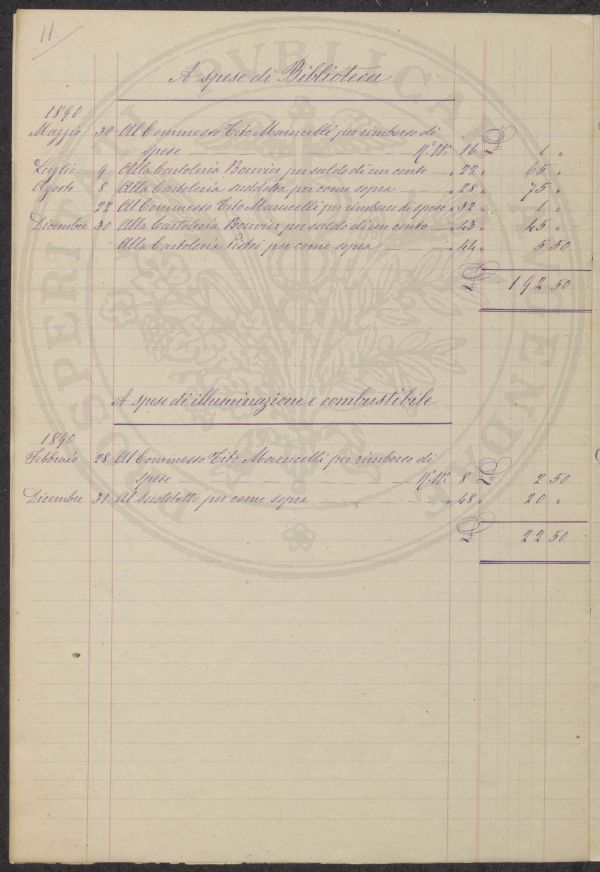 11
A spese di Biblioteca
1890
Maggio 30 Al Commesso Tito Marucelli per rimborso di
spese 16 £ 1 "
Luglio 9 Alla Cartoleria Bouvier per saldo di un conto " 22 " 65 "
Agosto 8 Alla Cartoleria suddetta per come sopra " 28 " 75 "
22 Al Commesso Tito Marucelli per rimborso di spese " 32 " 1 "
Dicembre 30 Alla Cartoleria Bouvier per saldo di un conto " 43 " 45 "
Alla Cartoleria Pistoi per come sopra " 44 " 5 50
£ 192 50
A spese di illuminazione e combustibile
1890
Febbraio 28 Al Commesso Tito Marucelli per rimborso di
spese 8 £ 2 50
Dicembre 31 Al Suddetto per come sopra " 48 " 20 "
£ 22 50
PROSPERITATI PVBLICAE AVGENDAE